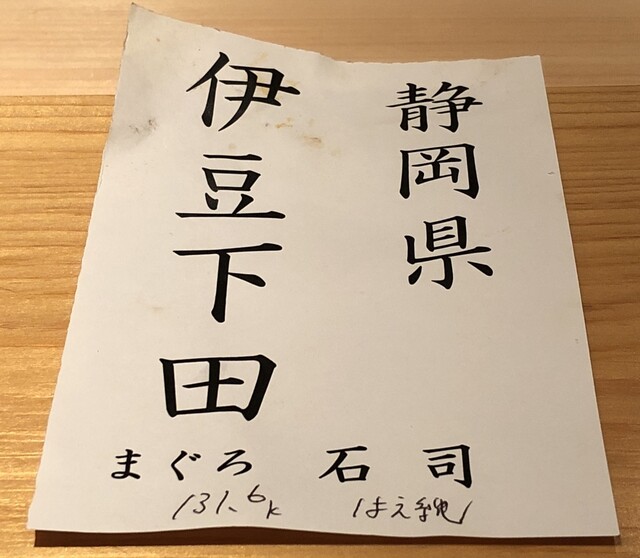 静岡県
伊豆下田
まぐろ 石司
131.6k はえ縄